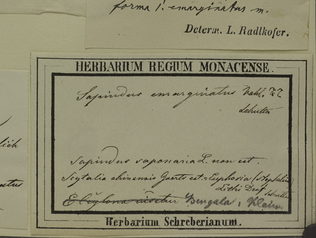 forma 1. emarginatus m.
Determ. L. Radlkofer.
HERBARIUM REGIUM MONACENSE.
Sapindus emarginatus Vahl. ??
Schultes
Sapindus saponaria L. non est.
Scytalia chinensis Gaertn est Euphoria
Schultes
E Ceylona Bengala, Klein
Herbarium Schreberianum.